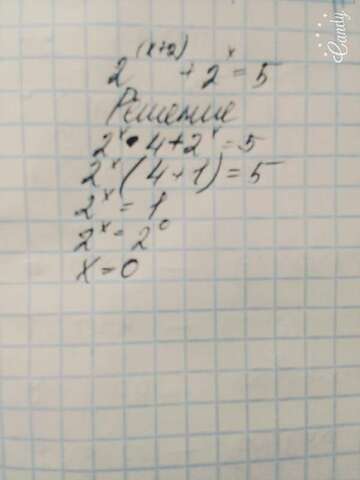 2^(x+2) + 2^x = 5
Решение
2^x • 4 + 2^x = 5
2^x (4 + 1) = 5
2^x = 1
2^x = 2^0
x = 0
Candy